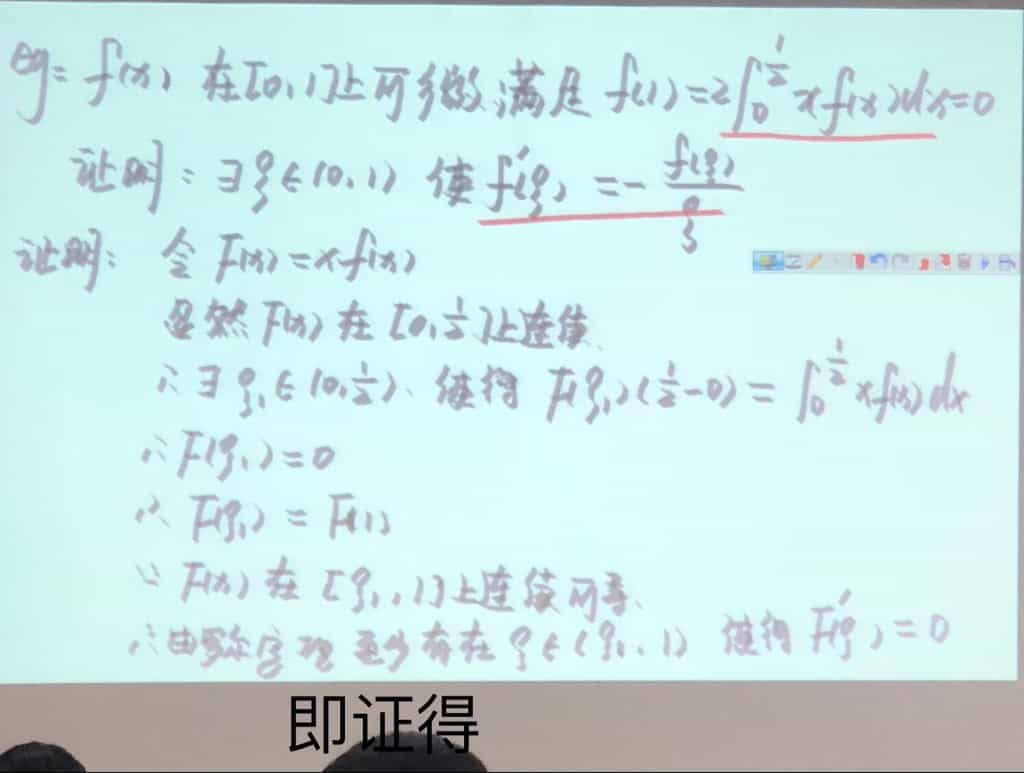 eg: f(x) 在[0,1]上可微,满足 f(1)=2∫₀^{1/2} xf(x)dx=0
证明:∃ξ∈(0,1) 使 f'(ξ)=-f(ξ)/ξ
证明: 令 F(x)=xf(x)
显然 F(x) 在 [0,1/2]上连续.
∴∃ξ₁∈(0,1/2). 使得 F(ξ₁)(1/2-0)=∫₀^{1/2} xf(x)dx
∴F(ξ₁)=0
∴ F(ξ₁)=F(1)
∵ F(x) 在 [ξ₁,1]上连续可导.
∴由罗尔定理 至少存在 ξ∈(ξ₁,1) 使得 F'(ξ)=0
即证得